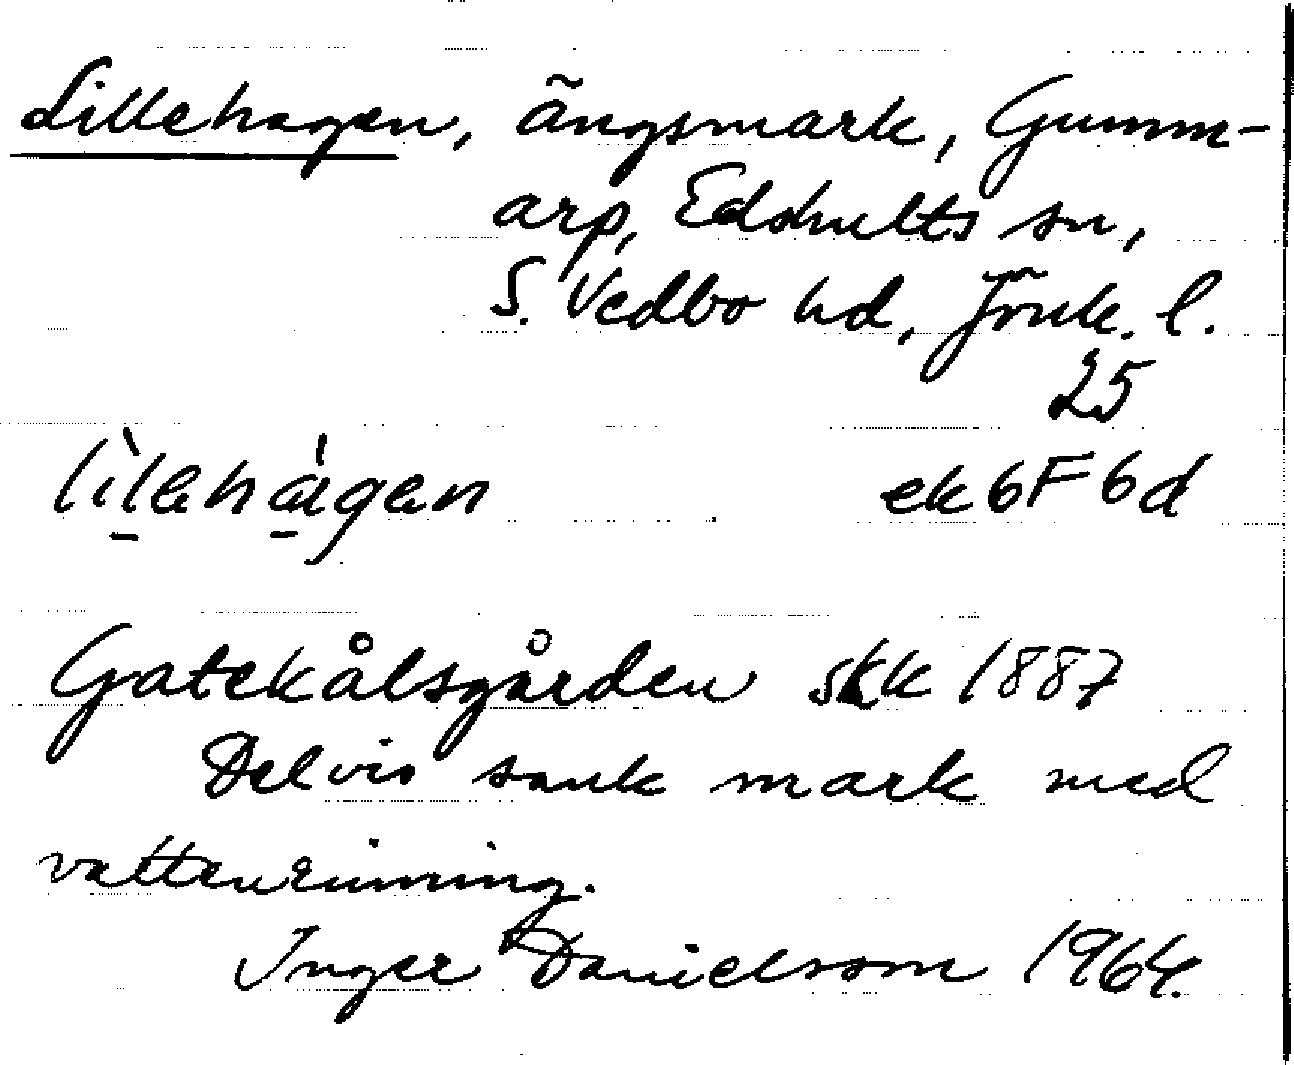 Lillehagen, ängsmark, Gumm-
arp, Edshults sn,
S. Vedbo hd, Jönk. l.
25
lìlahágan ek 6F 6d
Gatekålsgården skk 1887
Delvis sank mark med
vattenrinning.
Inger Danielsson 1964.